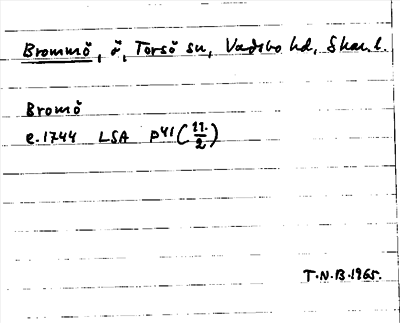 Brommö, ö, Torsö sn, Vadsbo hd, Skar. l.
Bromö
e. 1744 LSA P41 (11./2)
T.N.B. 1965.